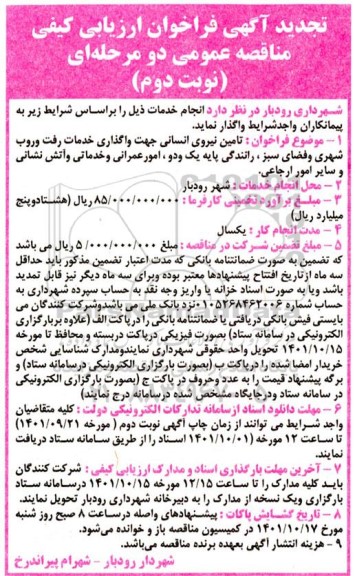 تجدید آگهی فراخوان ارزیابی کیفی
مناقصه عمومی دو مرحله‌ای
(نوبت دوم)
شهرداری رودبار در نظر دارد انجام خدمات ذیل را براساس شرایط زیر به
پیمانکاران واجدشرایط واگذار نماید.
۱ - موضوع فراخوان : تامین نیروی انسانی جهت واگذاری خدمات رفت وروب
شهری وفضای سبز ، رانندگی پایه یک ودو ، امورعمرانی وخدماتی وآتش نشانی
و سایر امور ارجاعی.
۲ - محل انجام خدمات : شهر رودبار
۳ - مبلغ برآورد تخمینی کارفرما : ۸۵/۰۰۰/۰۰۰/۰۰۰ ریال (هشتادوپنج
میلیارد ریال)
۴ - مدت انجام کار : یکسال
۵ - مبلغ تضمین شرکت در مناقصه : مبلغ ۵/۰۰۰/۰۰۰/۰۰۰ ریال می باشد
که تضمین به صورت ضمانتنامه بانکی که مدت اعتبار تضمین مذکور باید حداقل
سه ماه ازتاریخ افتتاح پیشنهادها معتبر بوده وبرای سه ماه دیگر نیز قابل تمدید
باشد ویا به صورت اسناد خزانه یا واریز وجه نقد به حساب سپرده شهرداری به
حساب شماره ۰۱۰۵۲۶۸۴۶۲۰۰۶ نزد بانک ملی می باشدوشرکت کنندگان می
بایستی فیش بانکی دریافتی یا ضمانتنامه بانکی را درپاکت الف (علاوه بربارگزاری
الکترونیکی در سامانه ستاد) بصورت فیزیکی درپاکت دربسته و محافظ تا مورخه
۱۴۰۱/۱۰/۱۵ تحویل واحد حقوقی شهرداری نمایندومدارک شناسایی شخص
خریدار امضا شده را درپاکت ب (بصورت بارگزاری الکترونیکی درسامانه ستاد) و
برگه پیشنهاد قیمت را به عدد وحروف در پاکت ج (بصورت بارگزاری الکترونیکی
در سامانه ستاد ودرجایگاه مشخص شده درسامانه درج نمایند)
۶ - مهلت دانلود اسناد ازسامانه تدارکات الکترونیکی دولت : کلیه متقاضیان
واجد شرایط می توانند از زمان چاپ آگهی نوبت دوم ( مورخه ۱۴۰۱/۰۹/۲۱)
تا ساعت ۱۲ مورخه (۱۴۰۱/۱۰/۰۱) اسناد را از طریق سامانه ستاد دریافت
نمایند.
۷ - آخرین مهلت بارگذاری اسناد و مدارک ارزیابی کیفی : شرکت کنندگان
باید کلیه مدارک را تا ساعت ۱۲/۱۵ مورخه ۱۴۰۱/۱۰/۱۵ درسامانه ستاد
بارگزاری ویک نسخه از مدارک را به دبیرخانه شهرداری رودبار تحویل نمایند.
۸ - تاریخ گشایش پاکات : پیشنهادهای واصله درساعت ۸ صبح روز شنبه
مورخ ۱۴۰۱/۱۰/۱۷ در کمیسیون مناقصه باز و خوانده می‌شود.
۹ - هزینه انتشار آگهی بعهده برنده مناقصه می‌باشد.
شهردار رودبار - شهرام پیراندرخ